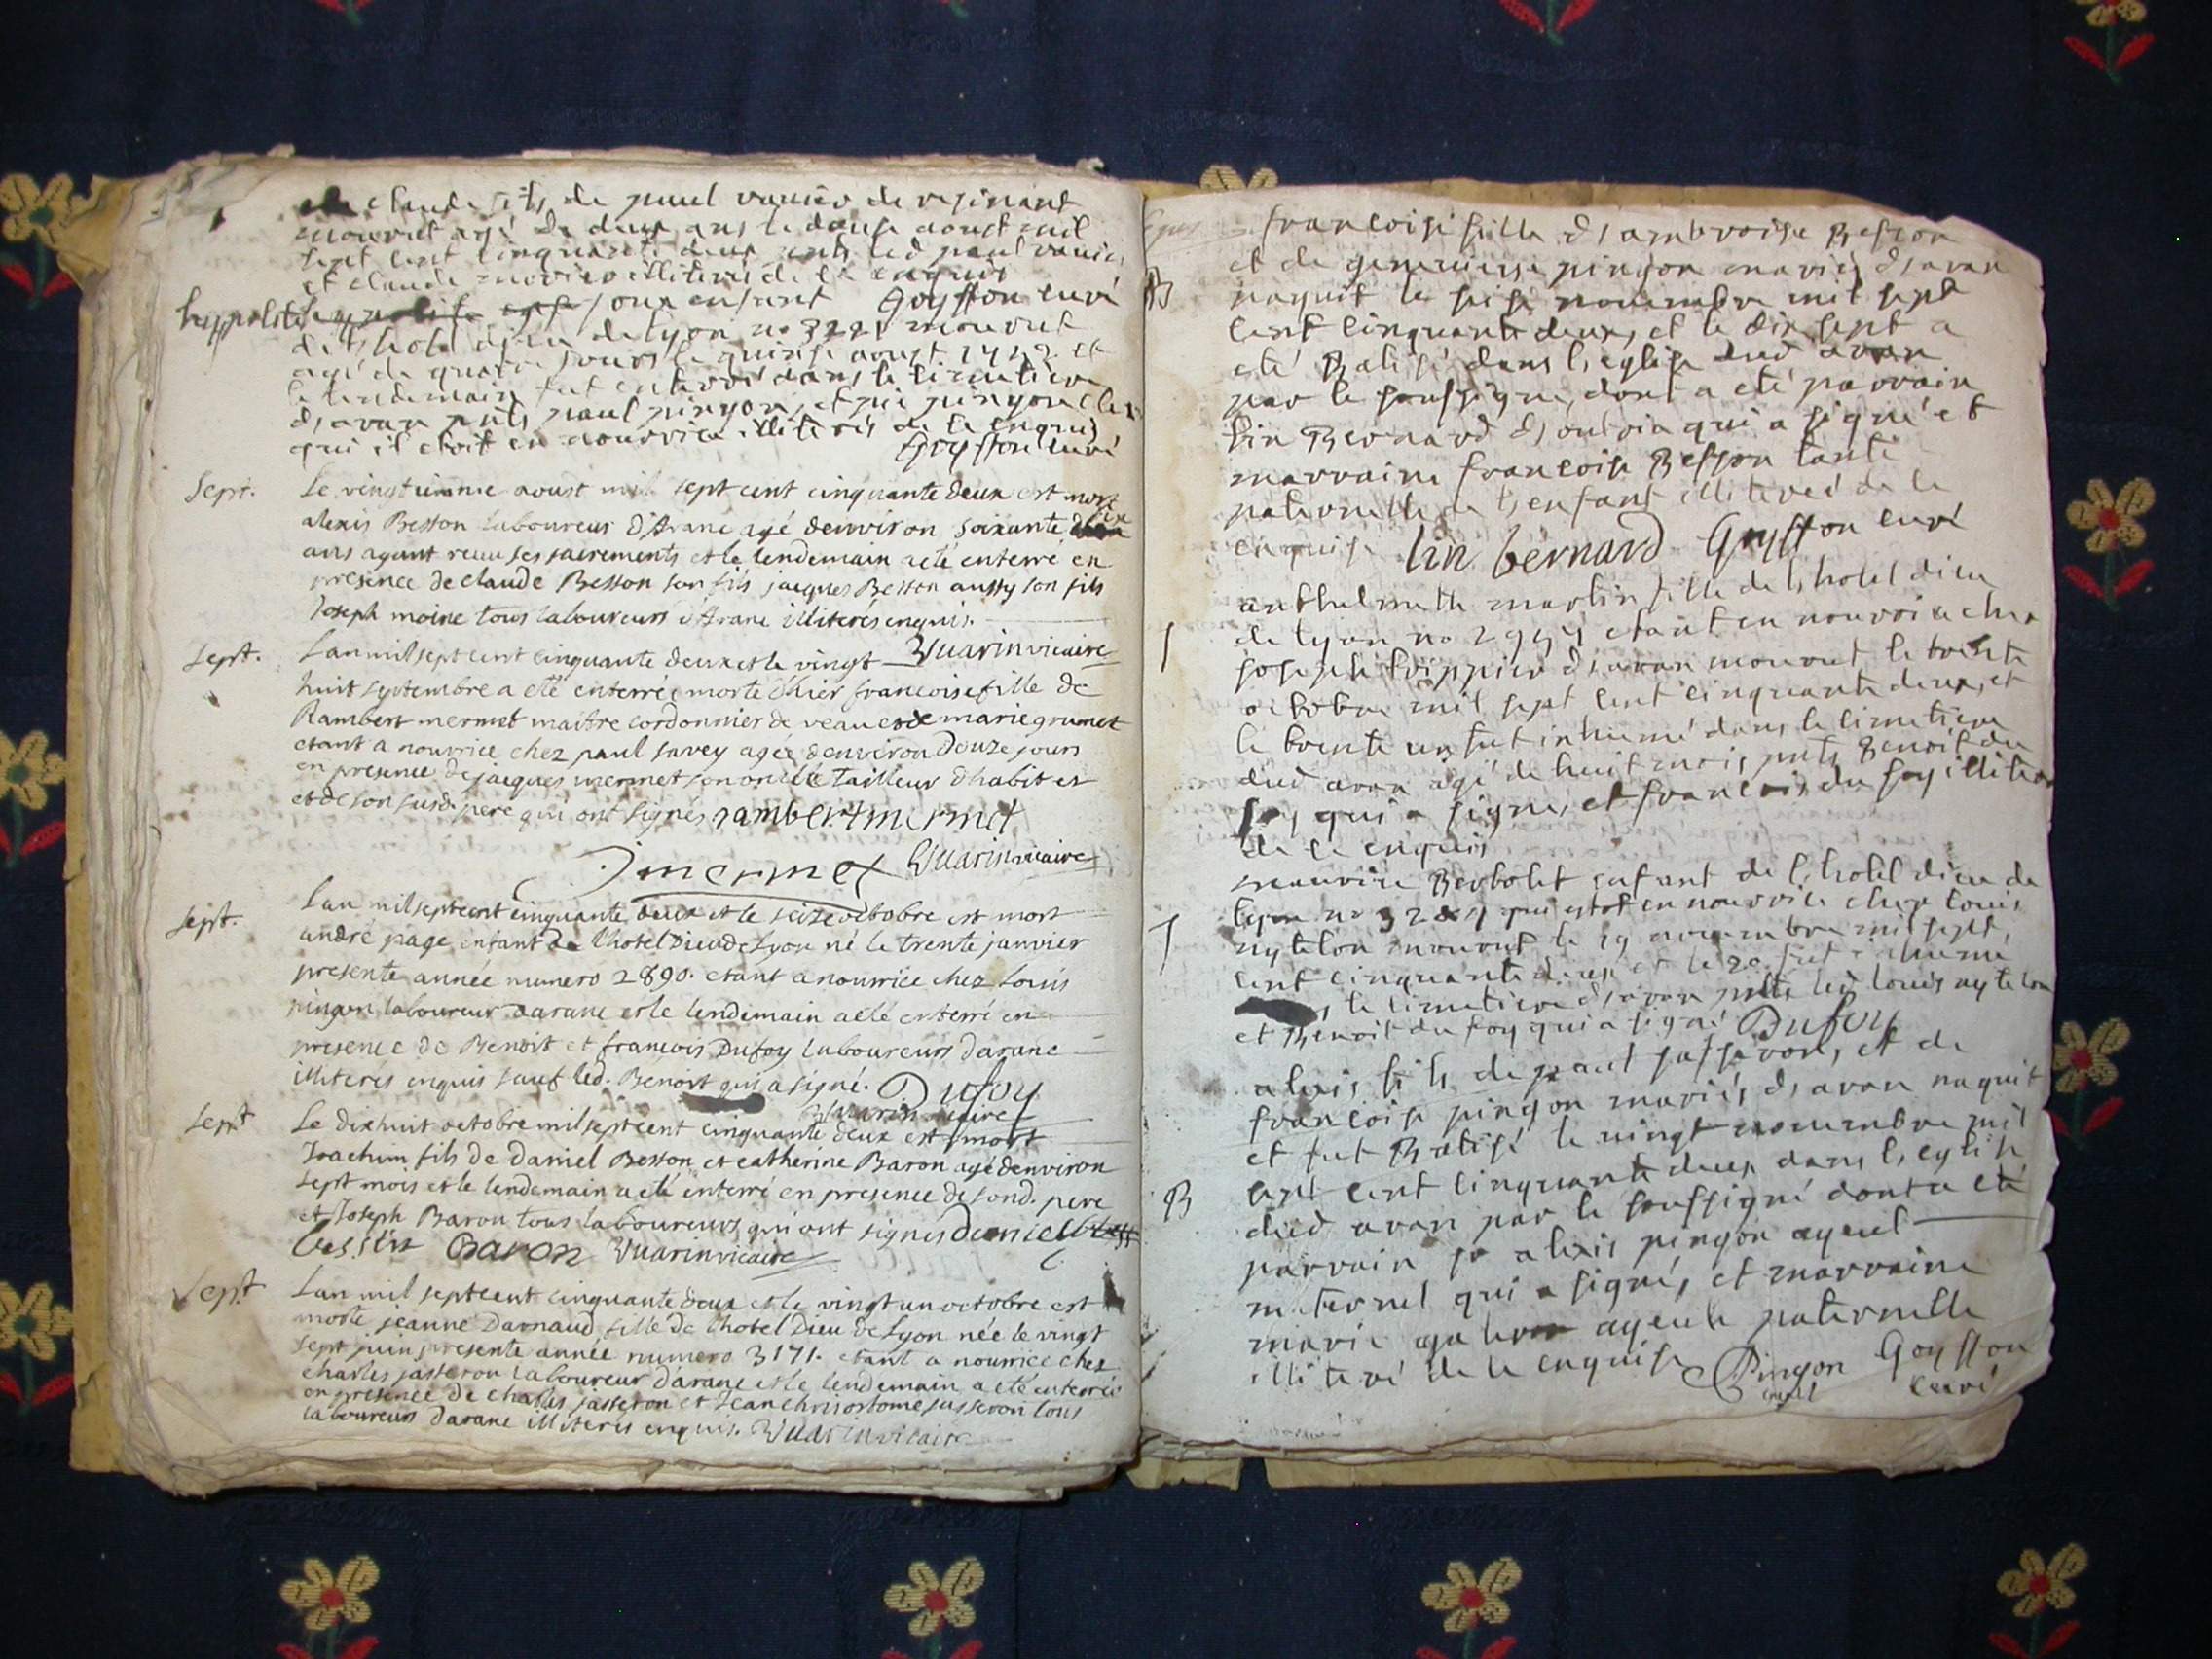 claude fils de paul vanier de resinant
mourut agé de deux ans le douse aoust mil
sept cent cinquante deux pnts led paul vanier
et claude morier illiterés de ce enquis
hyppolite joux enfant Goyffon curé
de l,hotel dieu de lyon no mourut
agé de quatre jours le quinse aoust et
le lendemain fut enterré dans le cimetiere
d,aran pnts paul pingon, et pingon chez
qui il etoit en nourrice illiterés de ce enquis
Goyffon curé
Sept. Le vingtieme aoust mil sept cent cinquante deux est mort
alexis Besson laboureur d'Arane agé denviron soixante
ans ayant recu ses sacrements et le lendemain a eté enterré en
presence de claude Besson son fils jacques Besson aussy son fils
Joseph moine tous laboureurs d'Arane illiterés enquis.
Vuarin vicaire
Sept. Lan mil sept cent cinquante deux et le vingt
huit septembre a eté enterrée morte d'hier francoise fille de
Rambert mermet maitre cordonnier de veau et de marie grumet
etant a nourrice chez paul savey agée denviron douze jours
en presence de jacques mermet son oncle tailleur dhabit et
et de son susd. pere qui ont signés rambert mermet
J mermet Vuarin vicaire
sept. Lan mil sept cent cinquante deux et le seize octobre est mort
andré page enfant de lhotel Dieu de Lyon né le trente janvier
presente année numero 2890. etant a nourrice chez Louis
pingon laboureur darane et le lendemain a eté enterré en
presence de Benoit et francois Dufoy laboureurs darane
illiterés enquis sauf led. Benoit qui a signé. Dufoy
Vuarin vicaire
sept Le dixhuit octobre mil sept cent cinquante deux est mort
Joachim fils de Daniel Besson et catherine Baron agé denviron
sept mois et le lendemain a eté enterré en presence de sond. pere
et Joseph Baron tous laboureurs qui ont signés daniel
Baron Vuarin vicaire
Sept Lan mil sept cent cinquante deux et le vingt un octobre est
morte jeanne Darnaud, fille de lhotel Dieu de Lyon née le vingt
sept juin presente année numero 3171. etant a nourrice chez
charles jasseron laboureur darane et le lendemain a eté enterrée
en presence de charles jasseron et Jean chrisostome jasseron tous
laboureurs darane illiterés enquis. Vuarin vicaire
francoise fille d,ambroise Besson
et de genevieve pingon mariés d,aran
B naquit le seise novembre mil sept
cent cinquante deux, et le dix sept a
eté Batisé dans l,eglise dud aran
par le soussigné, dont a eté parrain
lin Bernard d,outria qui a signé et
marraine francoise Besson tante
paternelle de l,enfant illiteréé de ce
enquise lin bernard Goyffon curé
anthelmette martin fille de l,hotel dieu
de lyon no etant en nourrice ches
joseph trippier d,aran mourut le trente
octobre mil sept cent cinquante deux, et
le trente un fut inhumé dans le cimetiere
dud aran agé de huit mois pnts Benoit du
foy qui a signé, et francois du foy illiteré
de ce enquis
maurice Bertolet enfant de l,hotel dieu de
lyon no qui etoit en nourrice chez louis
nyteton mourut le 19 novembre mil sept
cent cinquante deux et le 20 fut inhumé
le cimetiere d,aran pnts led louis nyteton
et Benoit du foy qui a signé Dufoy
alexis fils de paul jasseron, et de
francoise pingon mariés d,aran naquit
et fut Batisé le vingt novembre mil
sept cent cinquante deux dans l,eglise
B dud aran par le soussigné dont a eté
parrain sr alexis pingon ayeul
maternel qui a signé, et marraine
marie ayeule paternelle
illiteré de ce enquise Pingon Goyffon
curé